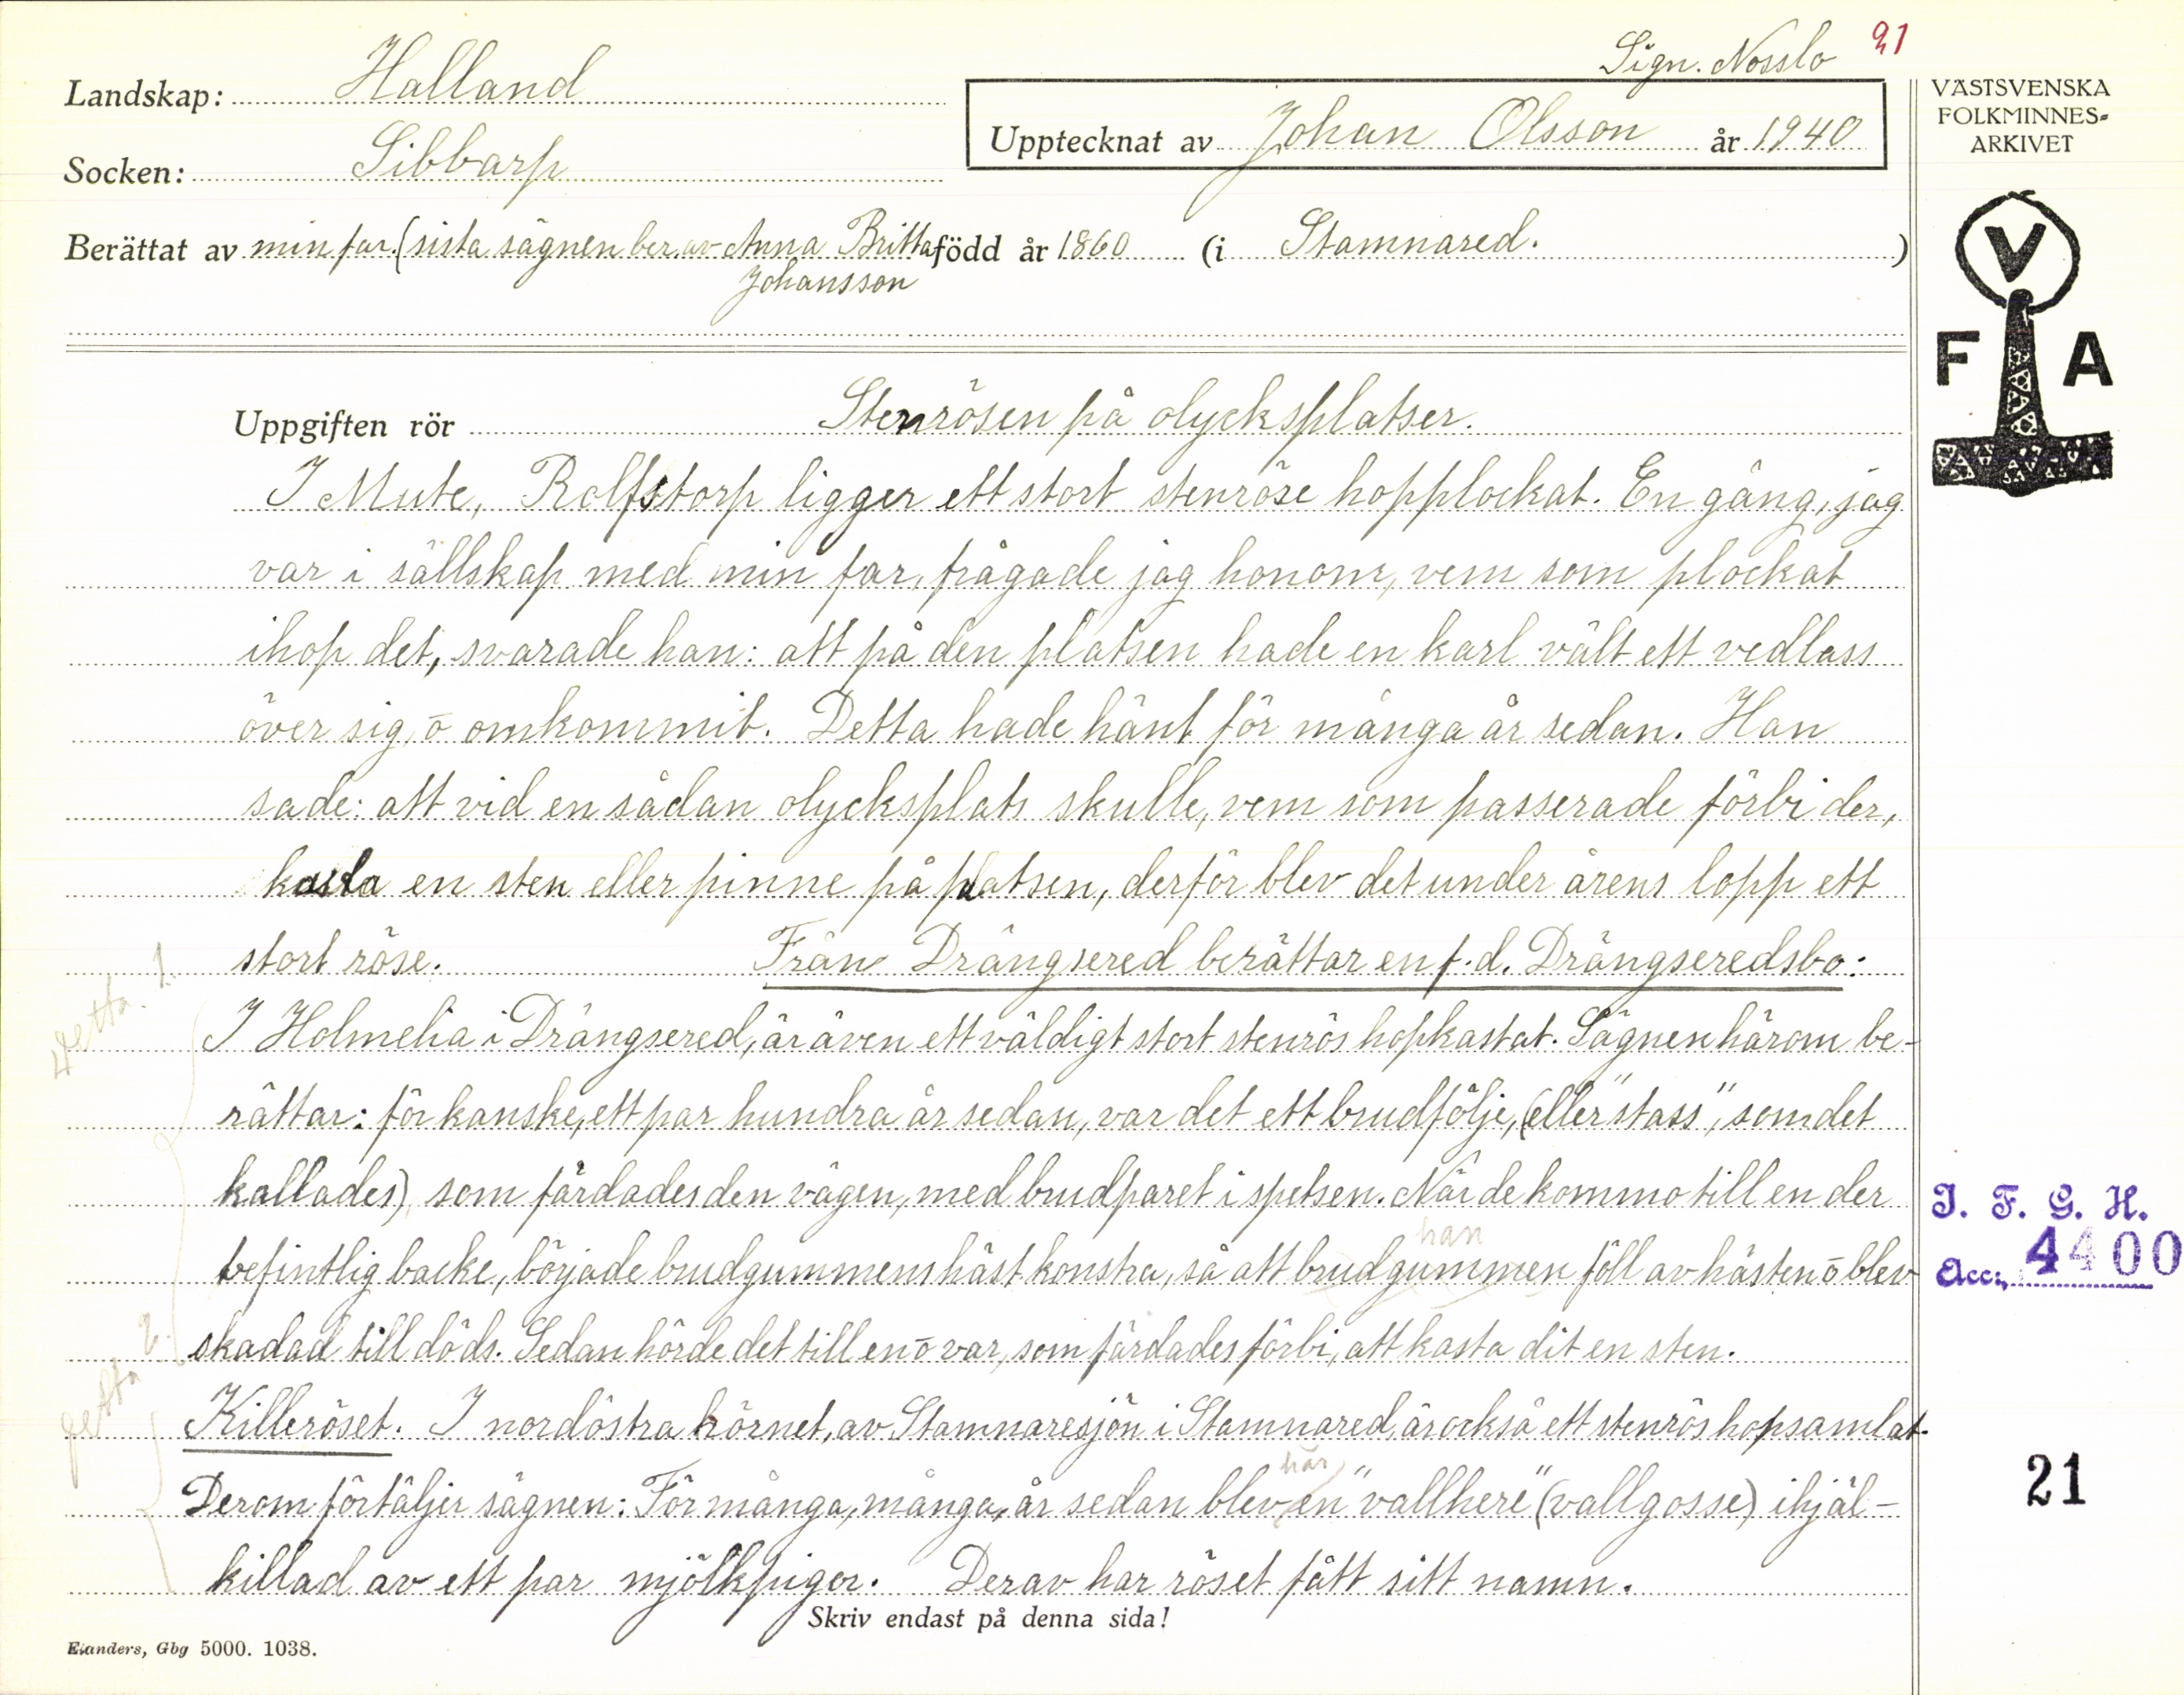 Sign. Nosslo 21
Landskap: Halland
Upptecknat av Johan Olsson år 1940
Socken: Sibbarp
Berättat av min far. (sista sägnen ber. av Anna Britta född år 1860 (i Stamnared.)
Johansson
VÄSTSVENSKA
FOLKMINNES-
ARKIVET
V
F A
Uppgiften rör Stenrösen på olycksplatser.
I Mute, Rolfstorp ligger ett stort stenröse hopplockat. En gång, jag
var i sällskap med min far, frågade jag honom, vem som plockat
ihop det, svarade han: att på den platsen hade en karl vält ett vedlass
över sig, o omkommit. Detta hade hänt för många år sedan. Han
sade: att vid en sådan olycksplats skulle, vem som passerade förbi der,
kasta en sten eller pinne på platsen, derför blev det under årens lopp ett
stort röse. Från Drängsered berättar en f.d. Drängseredsbo:
I Holmelia i Drängsered, är även ett väldigt stort stenrös hopkastat. Sägnen härom be-
rättar: för kanske, ett par hundra år sedan, var det ett brudfölje, (eller "stass", som det
kallades) som färdades den vägen, med brudparet i spetsen. När de kommo till en der
han
befintlig backe, började brudgummens häst konstra, så att brudgummen föll av hästen o blev
skadad till döds. Sedan hörde det till en o var, som färdades förbi, att kasta dit en sten.
Killeröset. I nordöstra hörnet, av Stamnaresjön i Stamnared, är också ett stenrös hopsamlat.
här
Derom förtäljer sägnen: För många, många, år sedan blev en "vallhere" (vallgosse) ihjäl-
killad av ett par mjölkpigor. Derav har röset fått sitt namn.
Skriv endast på denna sida!
Elanders, Gbg 5000. 1038.
I. F. G. H.
Acc: 4400
21